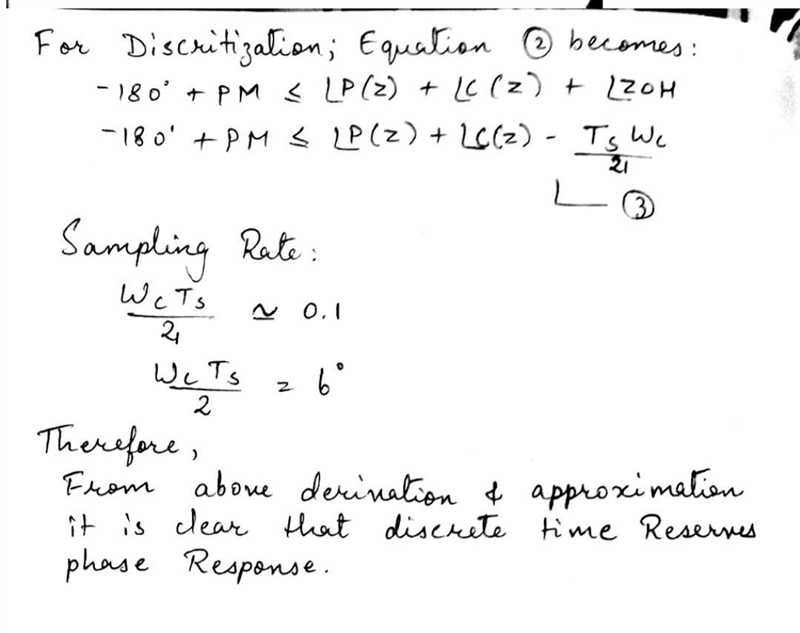 For Discritization; Equation ② becomes:
-180° + PM ≤ ∠P(z) + ∠C(z) + ∠ZOH
-180° + PM ≤ ∠P(z) + ∠C(z) - Ts Wc / 2
③
Sampling Rate:
Wc Ts / 2 ≃ 0.1
Wc Ts / 2 = 6°
Therefore,
From above derivation & approximation
it is clear that discrete time Reserves
phase Response.